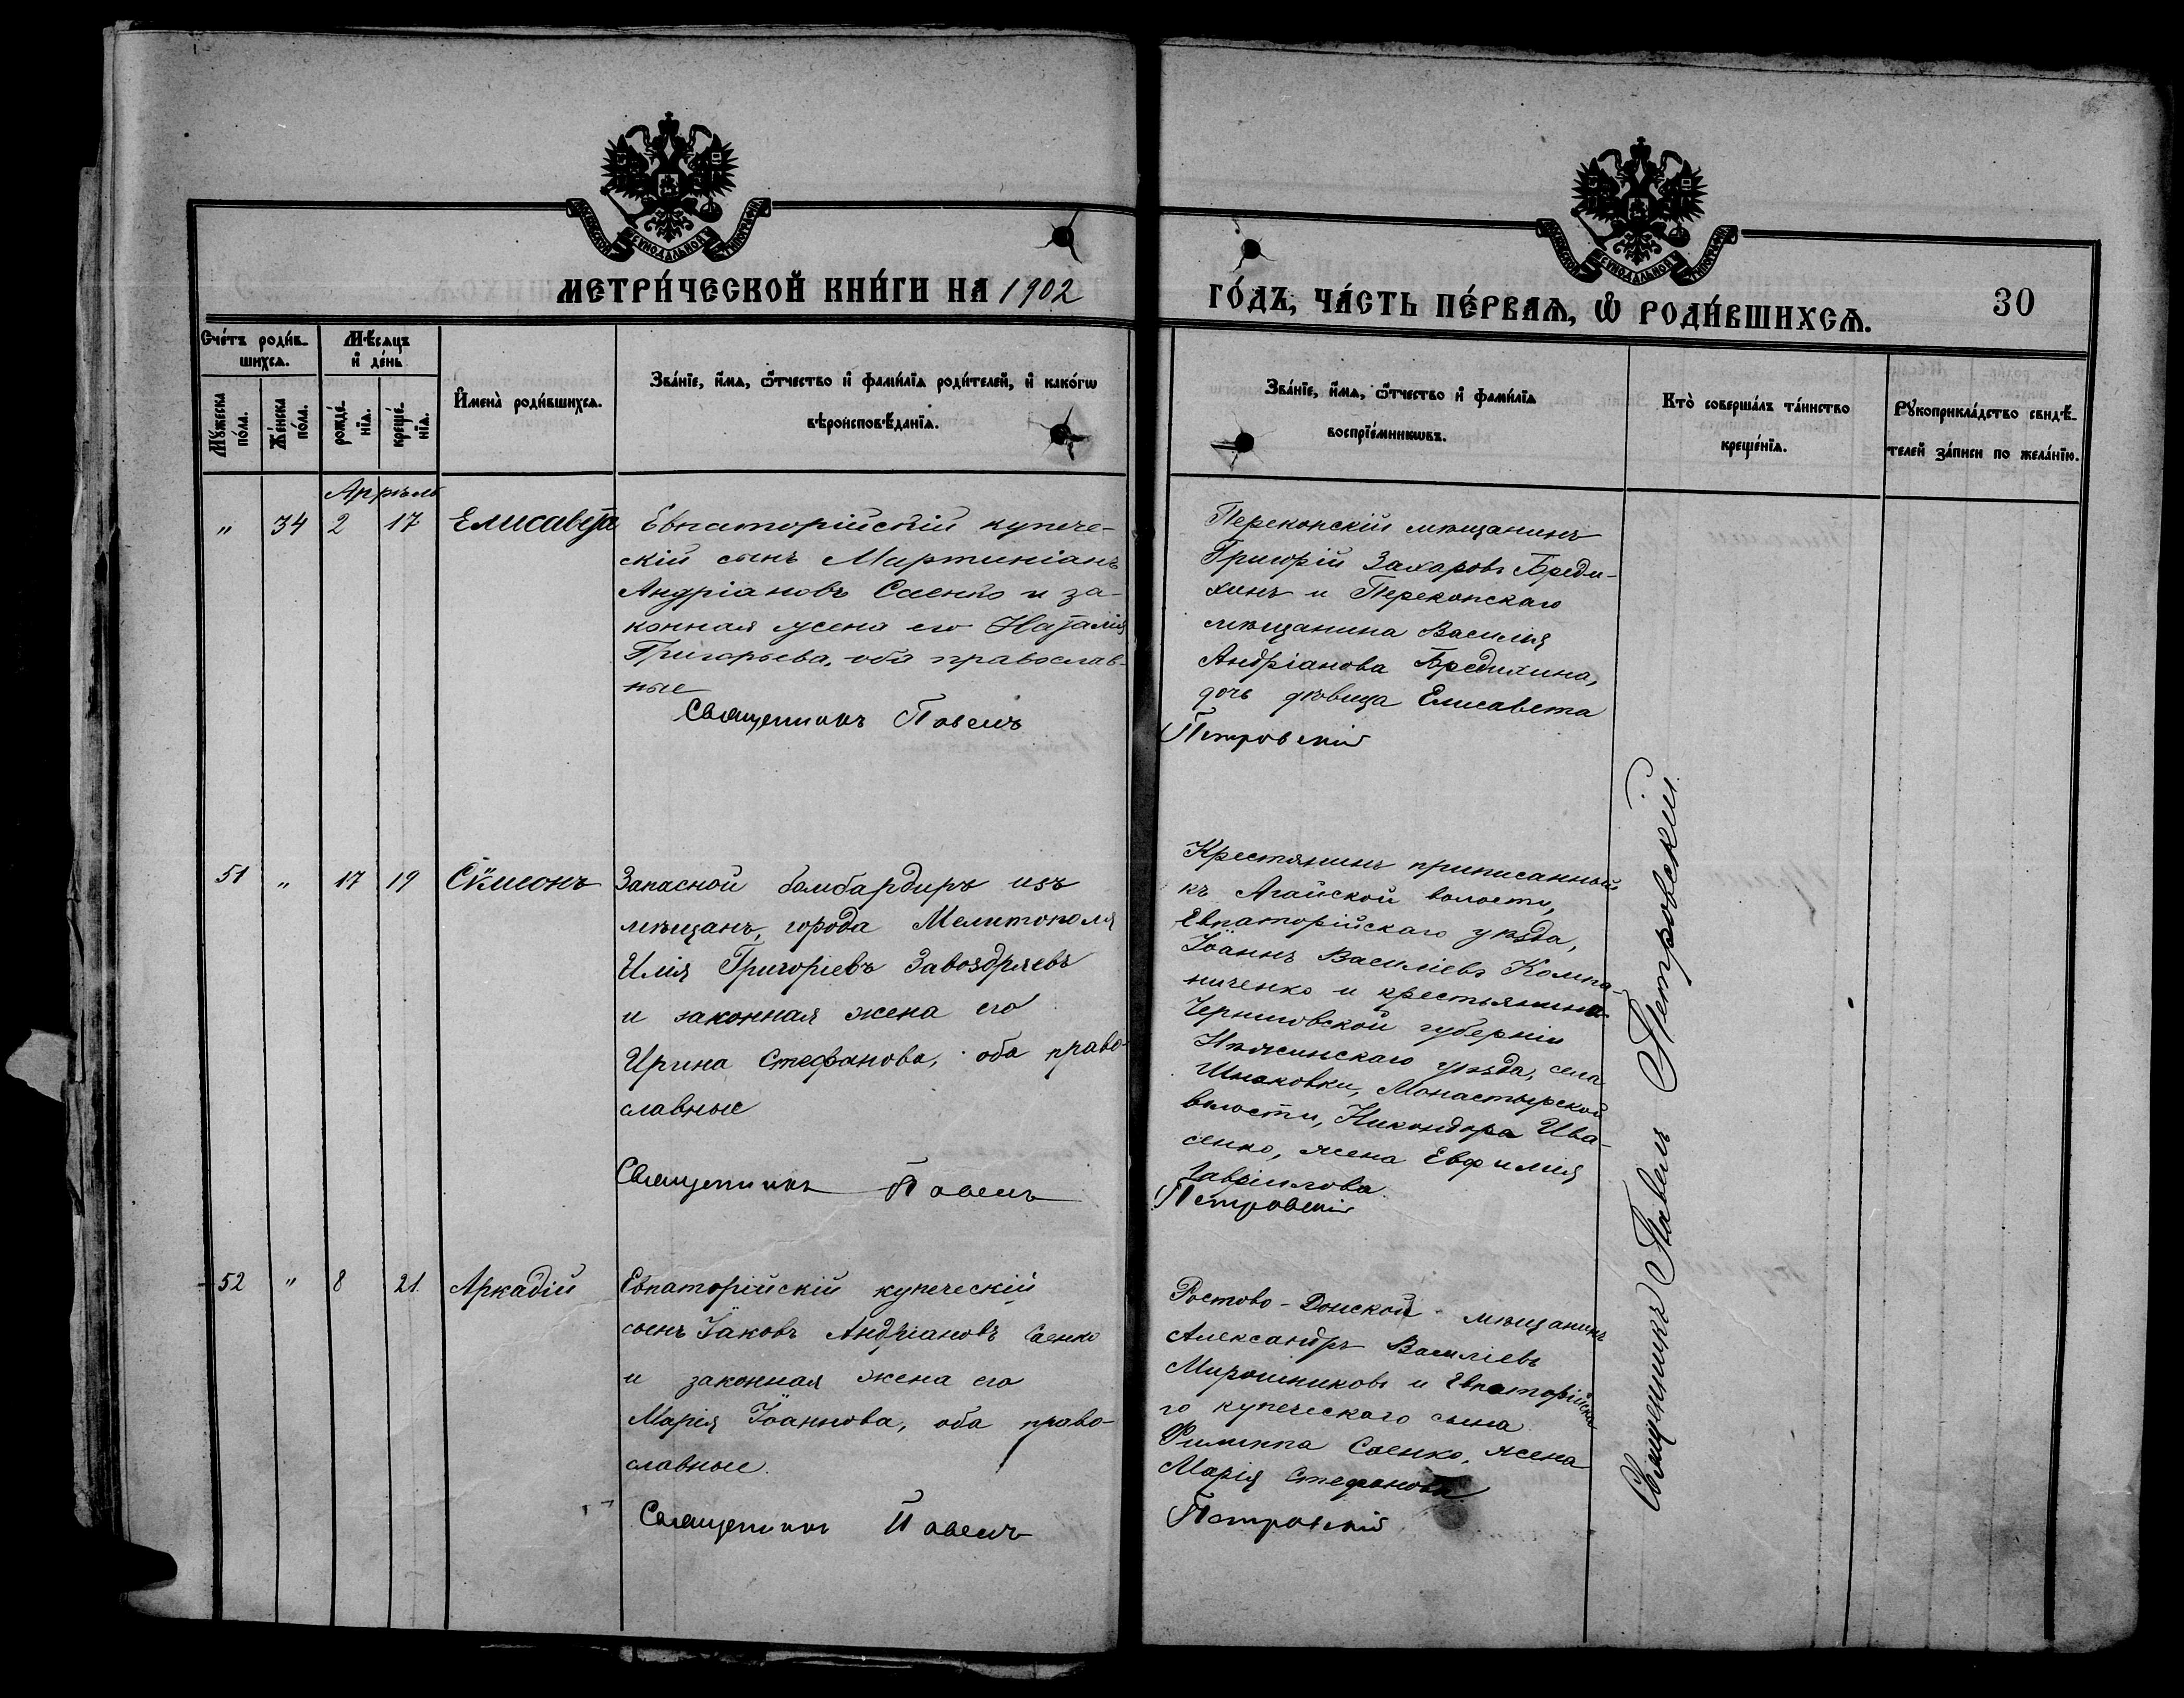 МЕТРИ́ЧЕСКОЙ КНИ́ГИ НА 1902
ГО́ДЪ, ЧА́СТЬ ПЕ́РВАѦ, Ѡ РОДИ́ВШИХСѦ.
30
Сче́тъ роди́в-
шихсѧ.
Мꙋ́жеска
по́ла.
Же́нска
по́ла.
Мѣ́сѧцъ
и де́нь
рожде́-
нїѧ.
креще́-
нїѧ.
Имена̀ роди́вшихсѧ.
Зва́нїе, и́мѧ, ѻ҆́тчество и фами́лїѧ роди́телей, и како́гѡ
вѣроисповѣ́данїѧ.
Зва́нїе, и́мѧ, ѻ҆́тчество и фами́лїѧ
воспрїе́мникѡвъ.
Кто̀ соверша́лъ та́инство
креще́нїѧ.
Рꙋкоприкла́дство свидѣ́-
телей за́писи по жела́нїю.
Апрѣль
" 34 2 17 Елисавета
Евпаторійскій купече-
скій сынъ Мартиніанъ
Андріановъ Саенко и за-
конная жена его Наталія
Григорьева, оба православ-
ные
Священникъ Павелъ
Перекопскій мѣщанинъ
Григорій Захаровъ Бреди-
хинъ и Перекопскаго
мѣщанина Василія
Андріанова Бредихина,
дочь дѣвица Елисавета
Петровскій
51 " 17 19 Сѵмеонъ
Запасной бомбардиръ изъ
мѣщанъ, города Мелитополя
Илія Григоріевъ Завоздряевъ
и законная жена его
Ирина Стефанова, оба право-
славные
Священникъ Павелъ
Крестянинъ приписанный
къ Агайской волости,
Евпаторійскаго уѣзда,
Іоаннъ Василіевъ Компа-
ниченко и крестьянина
Черниговской губерніи
Нѣжинскаго уѣзда, села
Шнаковки, Монастырской
волости, Никандора Ива-
сенко, жена Евфимія
Гавріилова
Петровскій
52 " 8 21 Аркадій
Евпаторійскій купеческій
сынъ Іаковъ Андріановъ Саенко
и законная жена его
Марія Іоаннова, оба право-
славные.
Священникъ Павелъ
Ростово-Донской мѣщанинъ
Александръ Василіевъ
Мирошниковъ и Евпаторійска-
го купеческаго сына
Филиппа Саенко, жена
Марія Стефанова
Петровскій
Священникъ Павелъ Петровскій